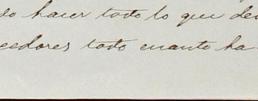 so hacer todo lo que de
cedores todo cuanto ha